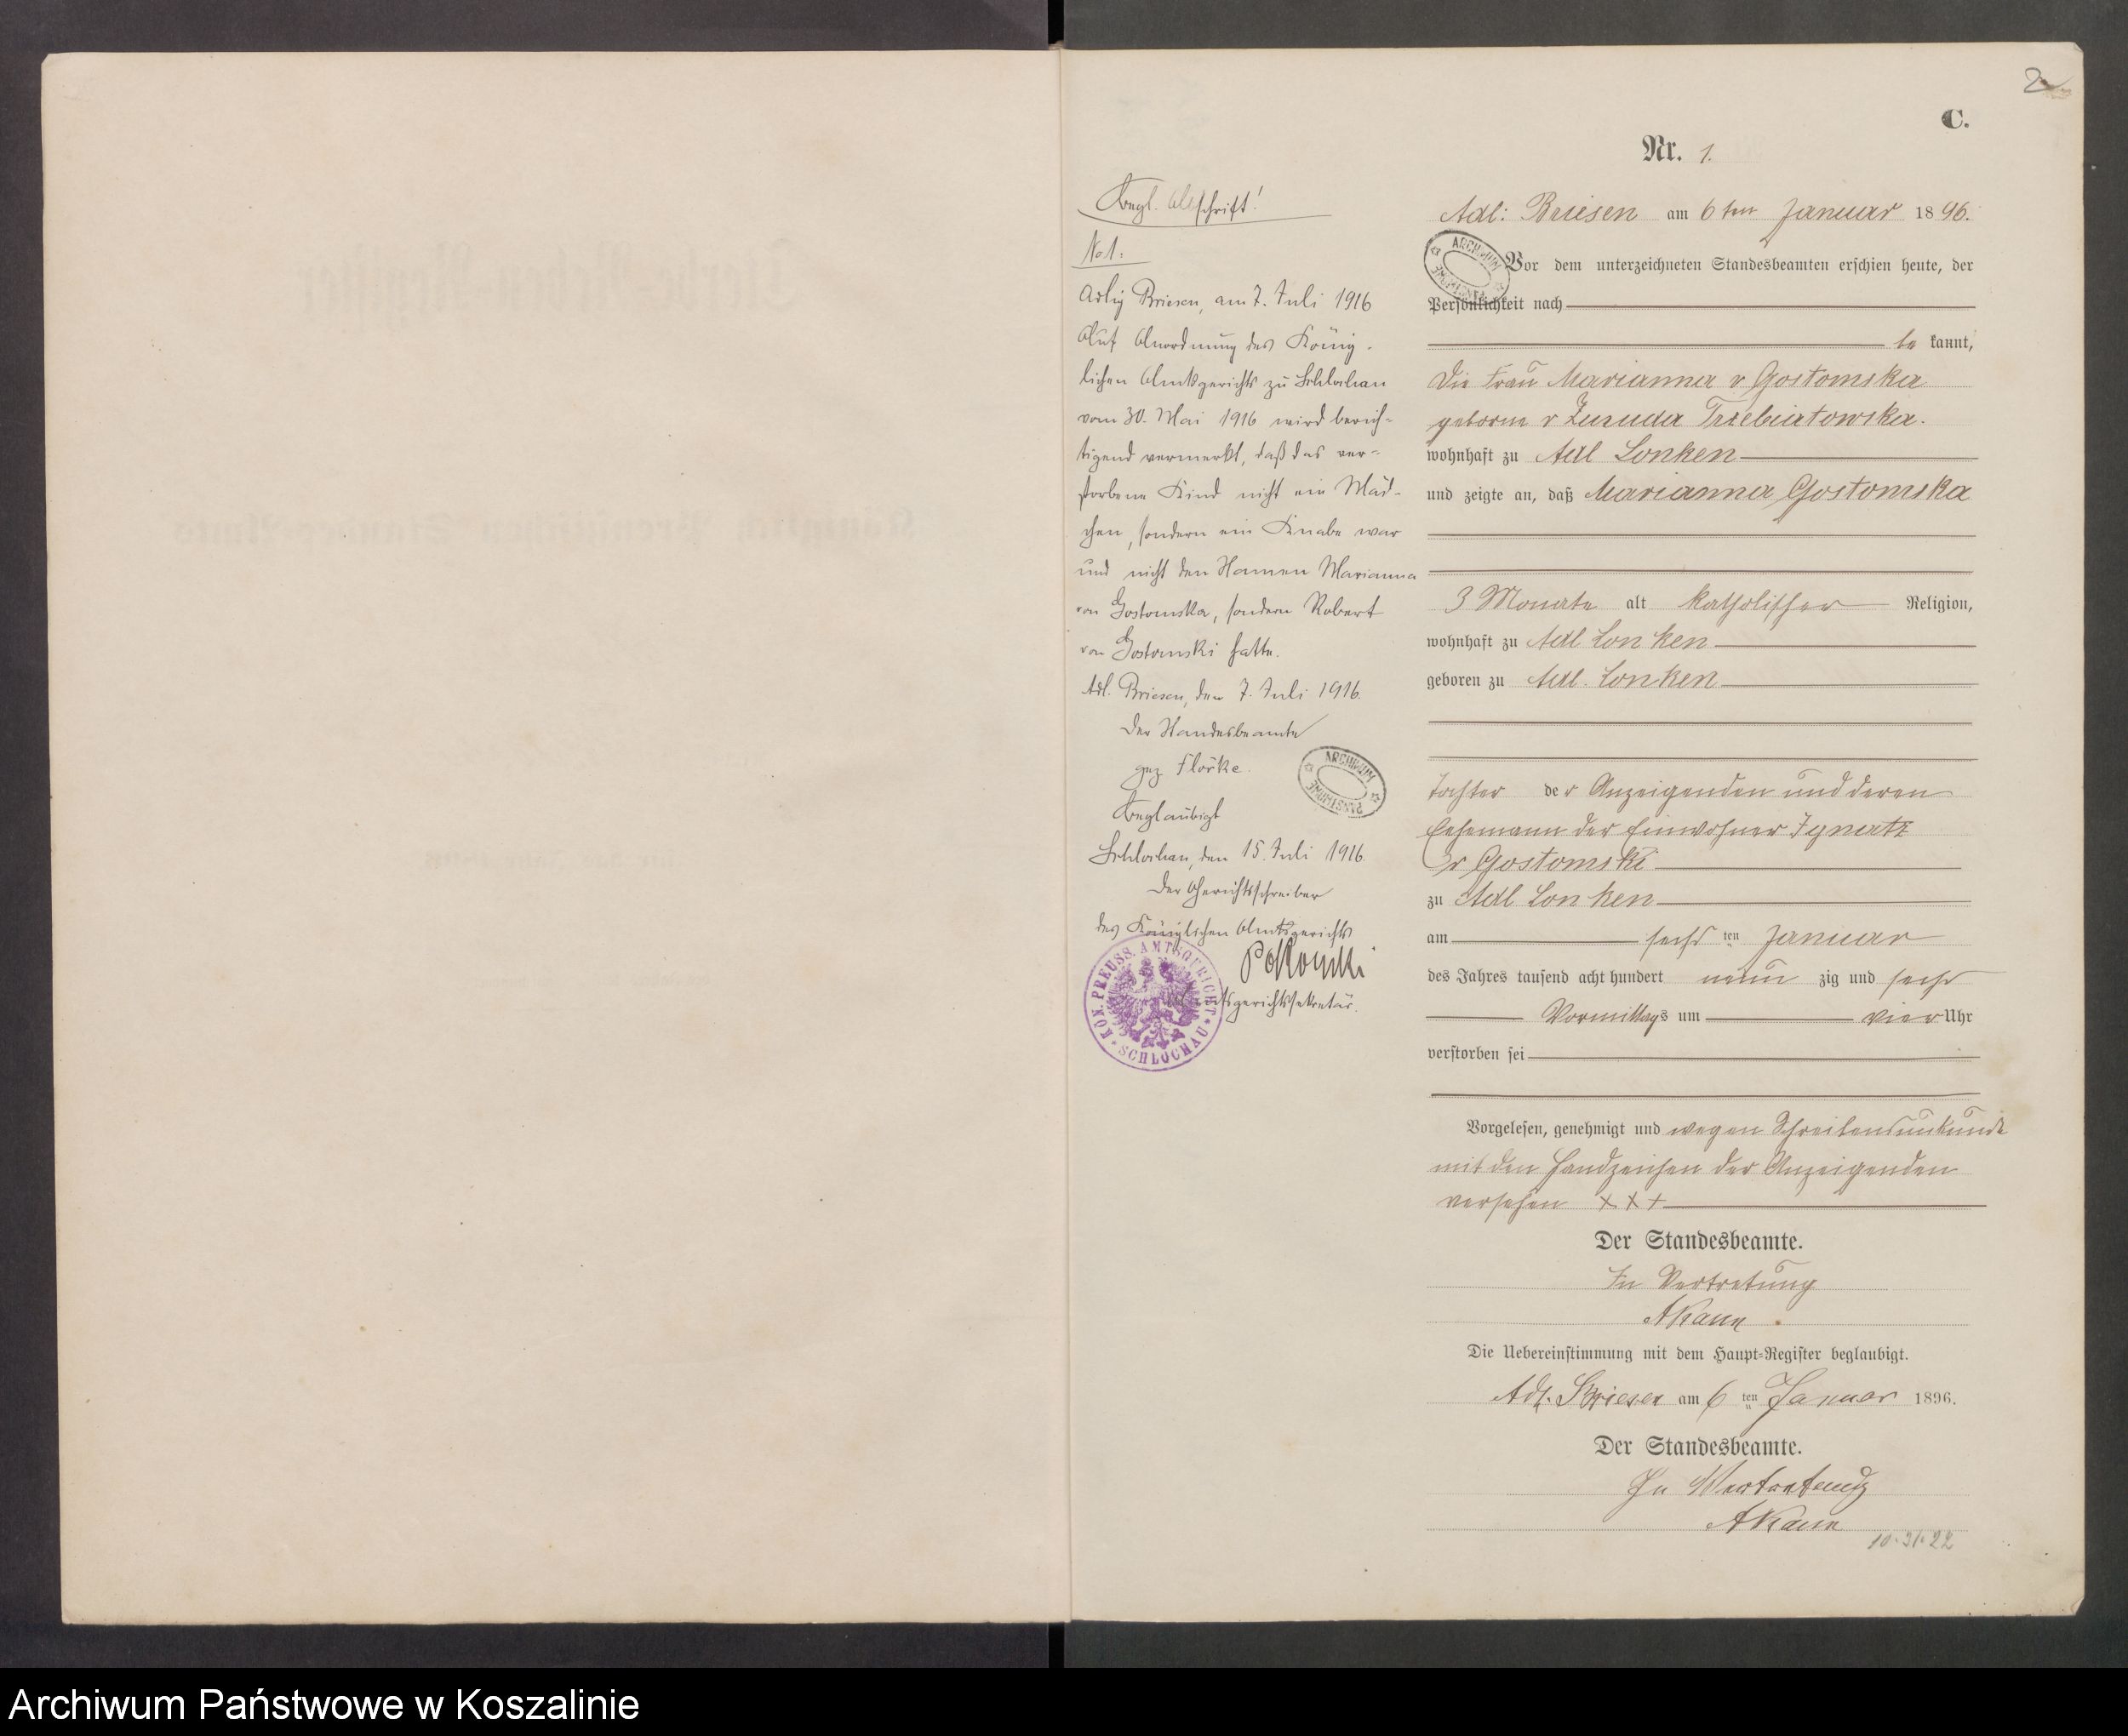 2
C.
Nr. 1.
Begl. Abschrift!
No 1.
Adlig Briesen, am 7. Juli 1916
Auf Anordnung des König-
lichen Amtsgerichts zu Schlochau
vom 30. Mai 1916 wird berich-
tigend vermerkt, daß das ver-
storbene Kind nicht ein Mäd-
chen, sondern ein Knabe war
und nicht den Namen Marianna
von Gostomska, sondern Robert
von Gostomski hatte.
Adl. Briesen, den 7. Juli 1916.
Der Standesbeamte
gez Flörke.
Beglaubigt
Schlochau, den 15. Juli 1916.
Der Gerichtsschreiber
des Königlichen Amtsgerichts
Amtsgerichtssekretär.
KÖN. PREUSS. AMTSGERICHT
SCHLOCHAU
ARCHIWUM
PAŃSTWOWE
Adl: Briesen am 6ten Januar 1896.
ARCHIWUM
PAŃSTWOWE
Vor dem unterzeichneten Standesbeamten erschien heute, der
Persönlichkeit nach
be kannt,
die Frau Marianna v Gostomska
geborne v Zuruda Trzebiatowska.
wohnhaft zu Adl Lonken
und zeigte an, daß Marianna Gostomska
3 Monate alt katholischer Religion,
wohnhaft zu Adl Lonken
geboren zu Adl. Lonken
Tochter der Anzeigenden und deren
Ehemann der Einwohner Ignatz
v Gostomski
zu Adl Lonken
am sechs ten Januar
des Jahres tausend acht hundert neun zig und sechs
Vormittags um vier Uhr
verstorben sei
Vorgelesen, genehmigt und wegen Schreibensunkunde
mit den Handzeichen der Anzeigenden
versehen XXX
Der Standesbeamte.
In Vertretung
AKann
Die Uebereinstimmung mit dem Haupt-Register beglaubigt.
Adl. Briesen am 6 ten Januar 1896.
Der Standesbeamte.
In Vertretung
AKann
10.21.22
Archiwum Państwowe w Koszalinie